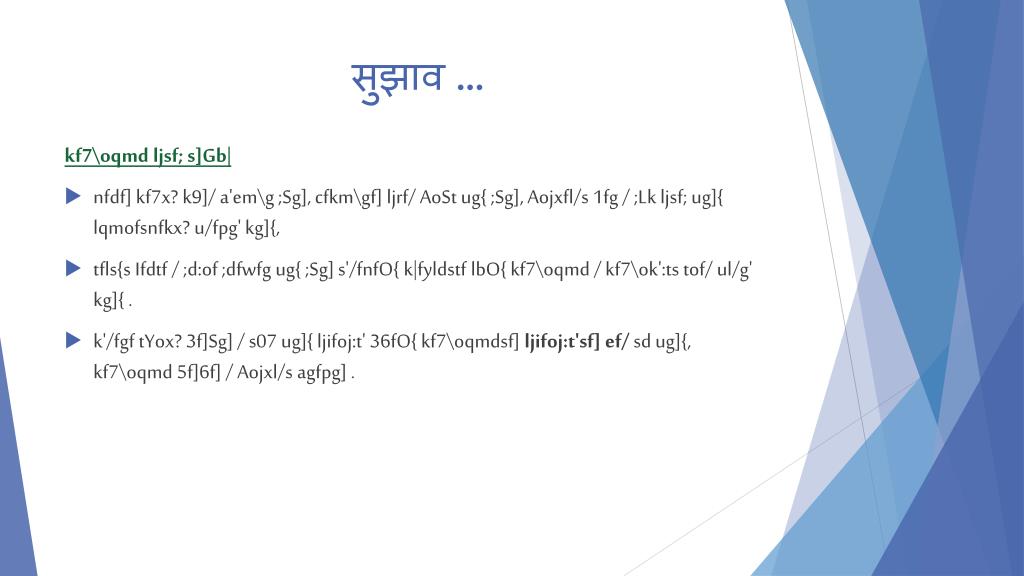 सुझाव ...
kf7\oqmd ljsf; s]Gb|
nfdf] kf7x? k9]/ a'em\g ;Sg], cfkm\gf] ljrf/ AoSt ug{ ;Sg], Aojxfl/s 1fg / ;Lk ljsf; ug]{
lqmofsnfkx? u/fpg' kg]{,
tfls{s Ifdtf / ;d:of ;dfwfg ug{ ;Sg] s'/fnfO{ k|fyldstf lbO{ kf7\oqmd / kf7\ok':ts tof/ ul/g'
kg]{ .
k'/fgf tYox? 3f]Sg] / s07 ug]{ ljifoj:t' 36fO{ kf7\oqmdsf] ljifoj:t'sf] ef/ sd ug]{,
kf7\oqmd 5f]6f] / Aojxl/s agfpg] .